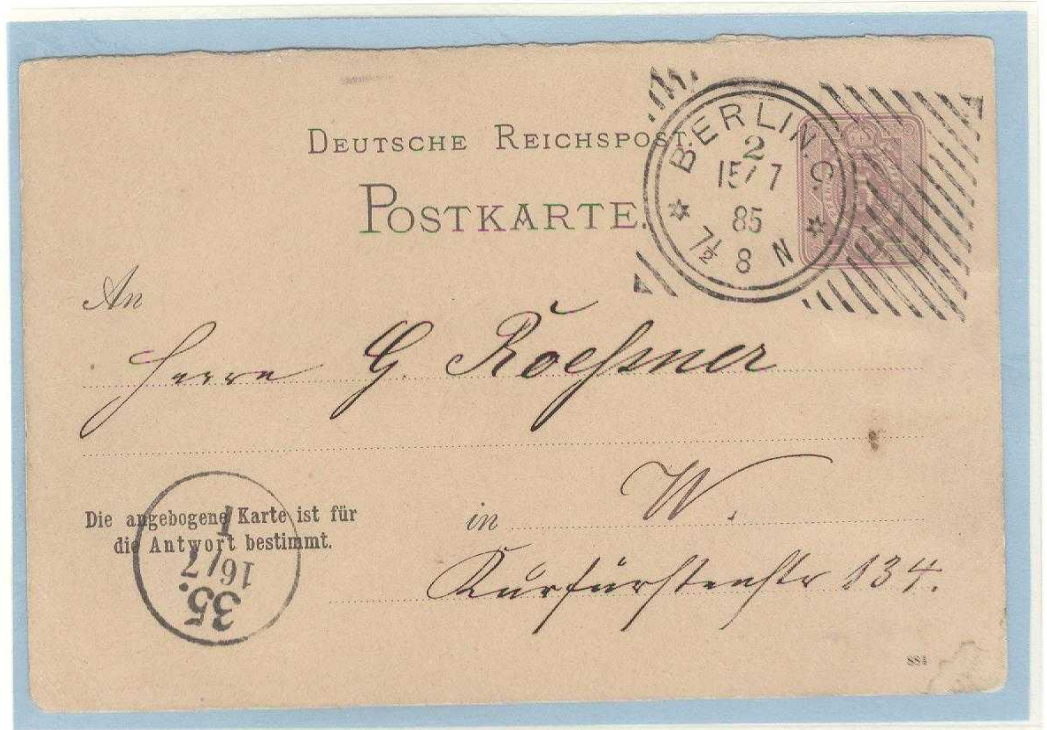 DEUTSCHE REICHSPOST.
POSTKARTE.
BERLIN. C.
2
15/7
85
7½ 8 N
An
Herrn G. Roeßner
in W.
Kurfürstenstr 134.
Die angebogene Karte ist für
die Antwort bestimmt.
35.
16/7
1
884